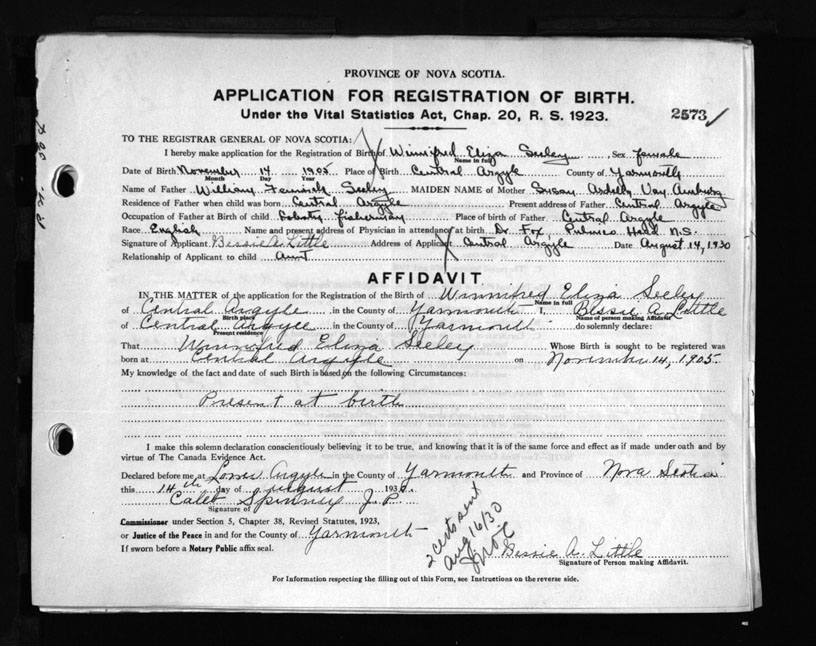 PROVINCE OF NOVA SCOTIA.
APPLICATION FOR REGISTRATION OF BIRTH.
Under the Vital Statistics Act, Chap. 20, R. S. 1923.
2573
TO THE REGISTRAR GENERAL OF NOVA SCOTIA:
I hereby make application for the Registration of Birth of Winnifred Eliza Seeley Sex female
Name in full
Date of Birth November 14 1905 Place of Birth Central Argyle County of Yarmouth
Month Day Year
Name of Father William Seeley MAIDEN NAME of Mother Susan Ardelly Van Amburg
Residence of Father when child was born Central Argyle Present address of Father Central Argyle
Occupation of Father at Birth of child Lobster fisherman Place of birth of Father Central Argyle
Race English Name and present address of Physician in attendance at birth Dr. Fox, Pubnico Head N.S.
Signature of Applicant Bessie A. Little Address of Applicant Central Argyle Date August 14, 1930
Relationship of Applicant to child Aunt
AFFIDAVIT
IN THE MATTER of the application for the Registration of the Birth of Winnifred Eliza Seeley
Name in full
of Central Argyle in the County of Yarmouth I, Bessie A. Little
Birth place Name of person making Affidavit
of Central Argyle in the County of Yarmouth do solemnly declare:
Present residence
That Winnifred Eliza Seeley Whose Birth is sought to be registered was
born at Central Argyle on November 14, 1905.
My knowledge of the fact and date of such Birth is based on the following Circumstances:
Present at birth
I make this solemn declaration conscientiously believing it to be true, and knowing that it is of the same force and effect as if made under oath and by
virtue of The Canada Evidence Act.
Declared before me at Lower Argyle in the County of Yarmouth and Province of Nova Scotia
this 14th day of August 1930.
Calet Spinney J. P.
Signature of
Commissioner under Section 5, Chapter 38, Revised Statutes, 1923,
or Justice of the Peace in and for the County of Yarmouth
If sworn before a Notary Public affix seal.
2 certs sent
Aug 16/30
Bessie A. Little
Signature of Person making Affidavit.
For Information respecting the filling out of this Form, see Instructions on the reverse side.